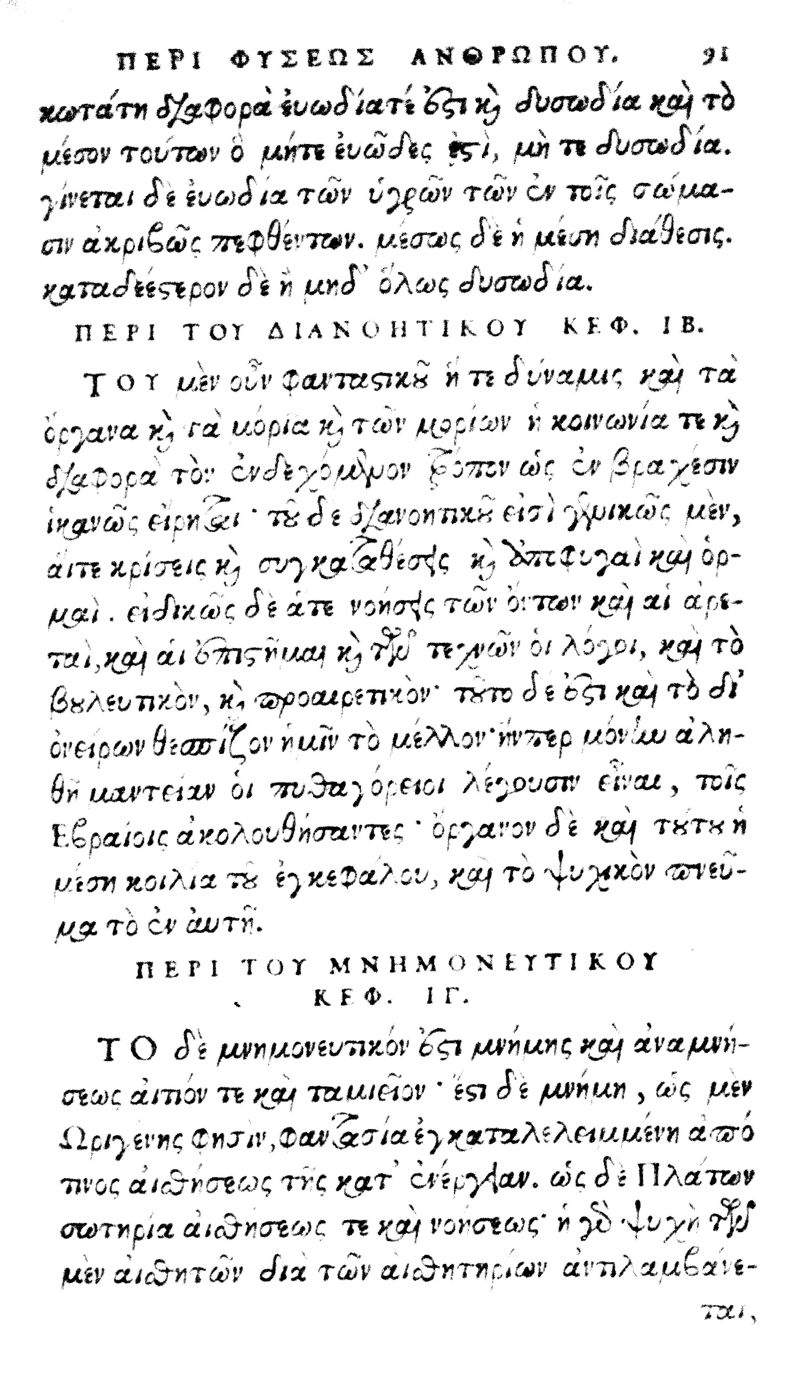 ΠΕΡΙ ΦΥΣΕΩΣ ΑΝΘΡΩΠΟΥ. 91
κωτάτη διαφορὰ ἐυωδίατέ ἐστι κὶ δυσωδία καὶ τὸ
μέσον τούτων ὃ μήτε ἐυῶδες ἐστὶ, μὴ τε δυσωδία.
γίνεται δὲ ἐυωδία τῶν ὑγρῶν τῶν ἐν τοῖς σώμα-
σιν ἀκριβῶς πεφθέντων. μέσως δὲ ἡ μέση διάθεσις.
καταδεέστερον δὲ ἢ μηδ' ὅλως δυσωδία.
ΠΕΡΙ ΤΟΥ ΔΙΑΝΟΗΤΙΚΟΥ ΚΕΦ. ΙΒ.
ΤΟΥ μὲν οὖν φανταστικοῦ ἥ τε δύναμις καὶ τὰ
ὄργανα κὶ τὰ μόρια κὶ τῶν μορίων ἡ κοινωνία τε κὶ
διαφορὰ τὸν ἐνδεχόμενον τρόπον ὡς ἐν βραχέσιν
ἱκανῶς εἰρηται· τοῦ δε διανοητικοῦ εἰσὶ γενικῶς μὲν,
ἁίτε κρίσεις κὶ συγκαταθέσεις κὶ ἀποφυγαὶ καὶ ὁρ-
μαὶ. εἰδικῶς δὲ ἅτε νοήσεις τῶν ὄντων καὶ αἱ ἀρε-
ταὶ, καὶ ἁι ἐπιστῆμαι κὶ τῶν τεχνῶν ὁι λόγοι, καὶ τὸ
βουλευτικὸν, κὶ προαιρετικὸν· τοῦτο δε ἐστι καὶ τὸ δἰ
ὀνείρων θεσπίζον ἡμῖν τὸ μέλλον· ἥνπερ μόνην ἀλη-
θῆ μαντείαν ὁι πυθαγόρειοι λέγουσιν εἶναι, τοῖς
Εβραίοις ἀκολουθήσαντες· ὄργανον δὲ καὶ τούτου ἡ
μέση κοιλια τοῦ ἐγκεφάλου, καὶ τὸ ψυχικὸν πνεῦ-
μα τὸ ἐν ἀυτῆ.
ΠΕΡΙ ΤΟΥ ΜΝΗΜΟΝΕΥΤΙΚΟΥ
ΚΕΦ. ΙΓ.
ΤΟ δὲ μνημονευτικόν ἐστι μνήμης καὶ ἀναμνή-
σεως ἀιτιόν τε καὶ ταμιεῖον· ἔστι δὲ μνήμη, ὡς μὲν
Ωριγένης φησιν, φαντασία ἐγκαταλελειμμένη ἀπό
τινος αἰσθήσεως τῆς κατ' ἐνέργειαν. ὡς δὲ Πλάτων
σωτηρία αἰσθήσεως τε καὶ νοήσεως· ἡ γὰρ ψυχὴ τῶν
μὲν αἰσθητῶν διὰ τῶν αἰσθητηρίων ἀντιλαμβάνε-
ται,